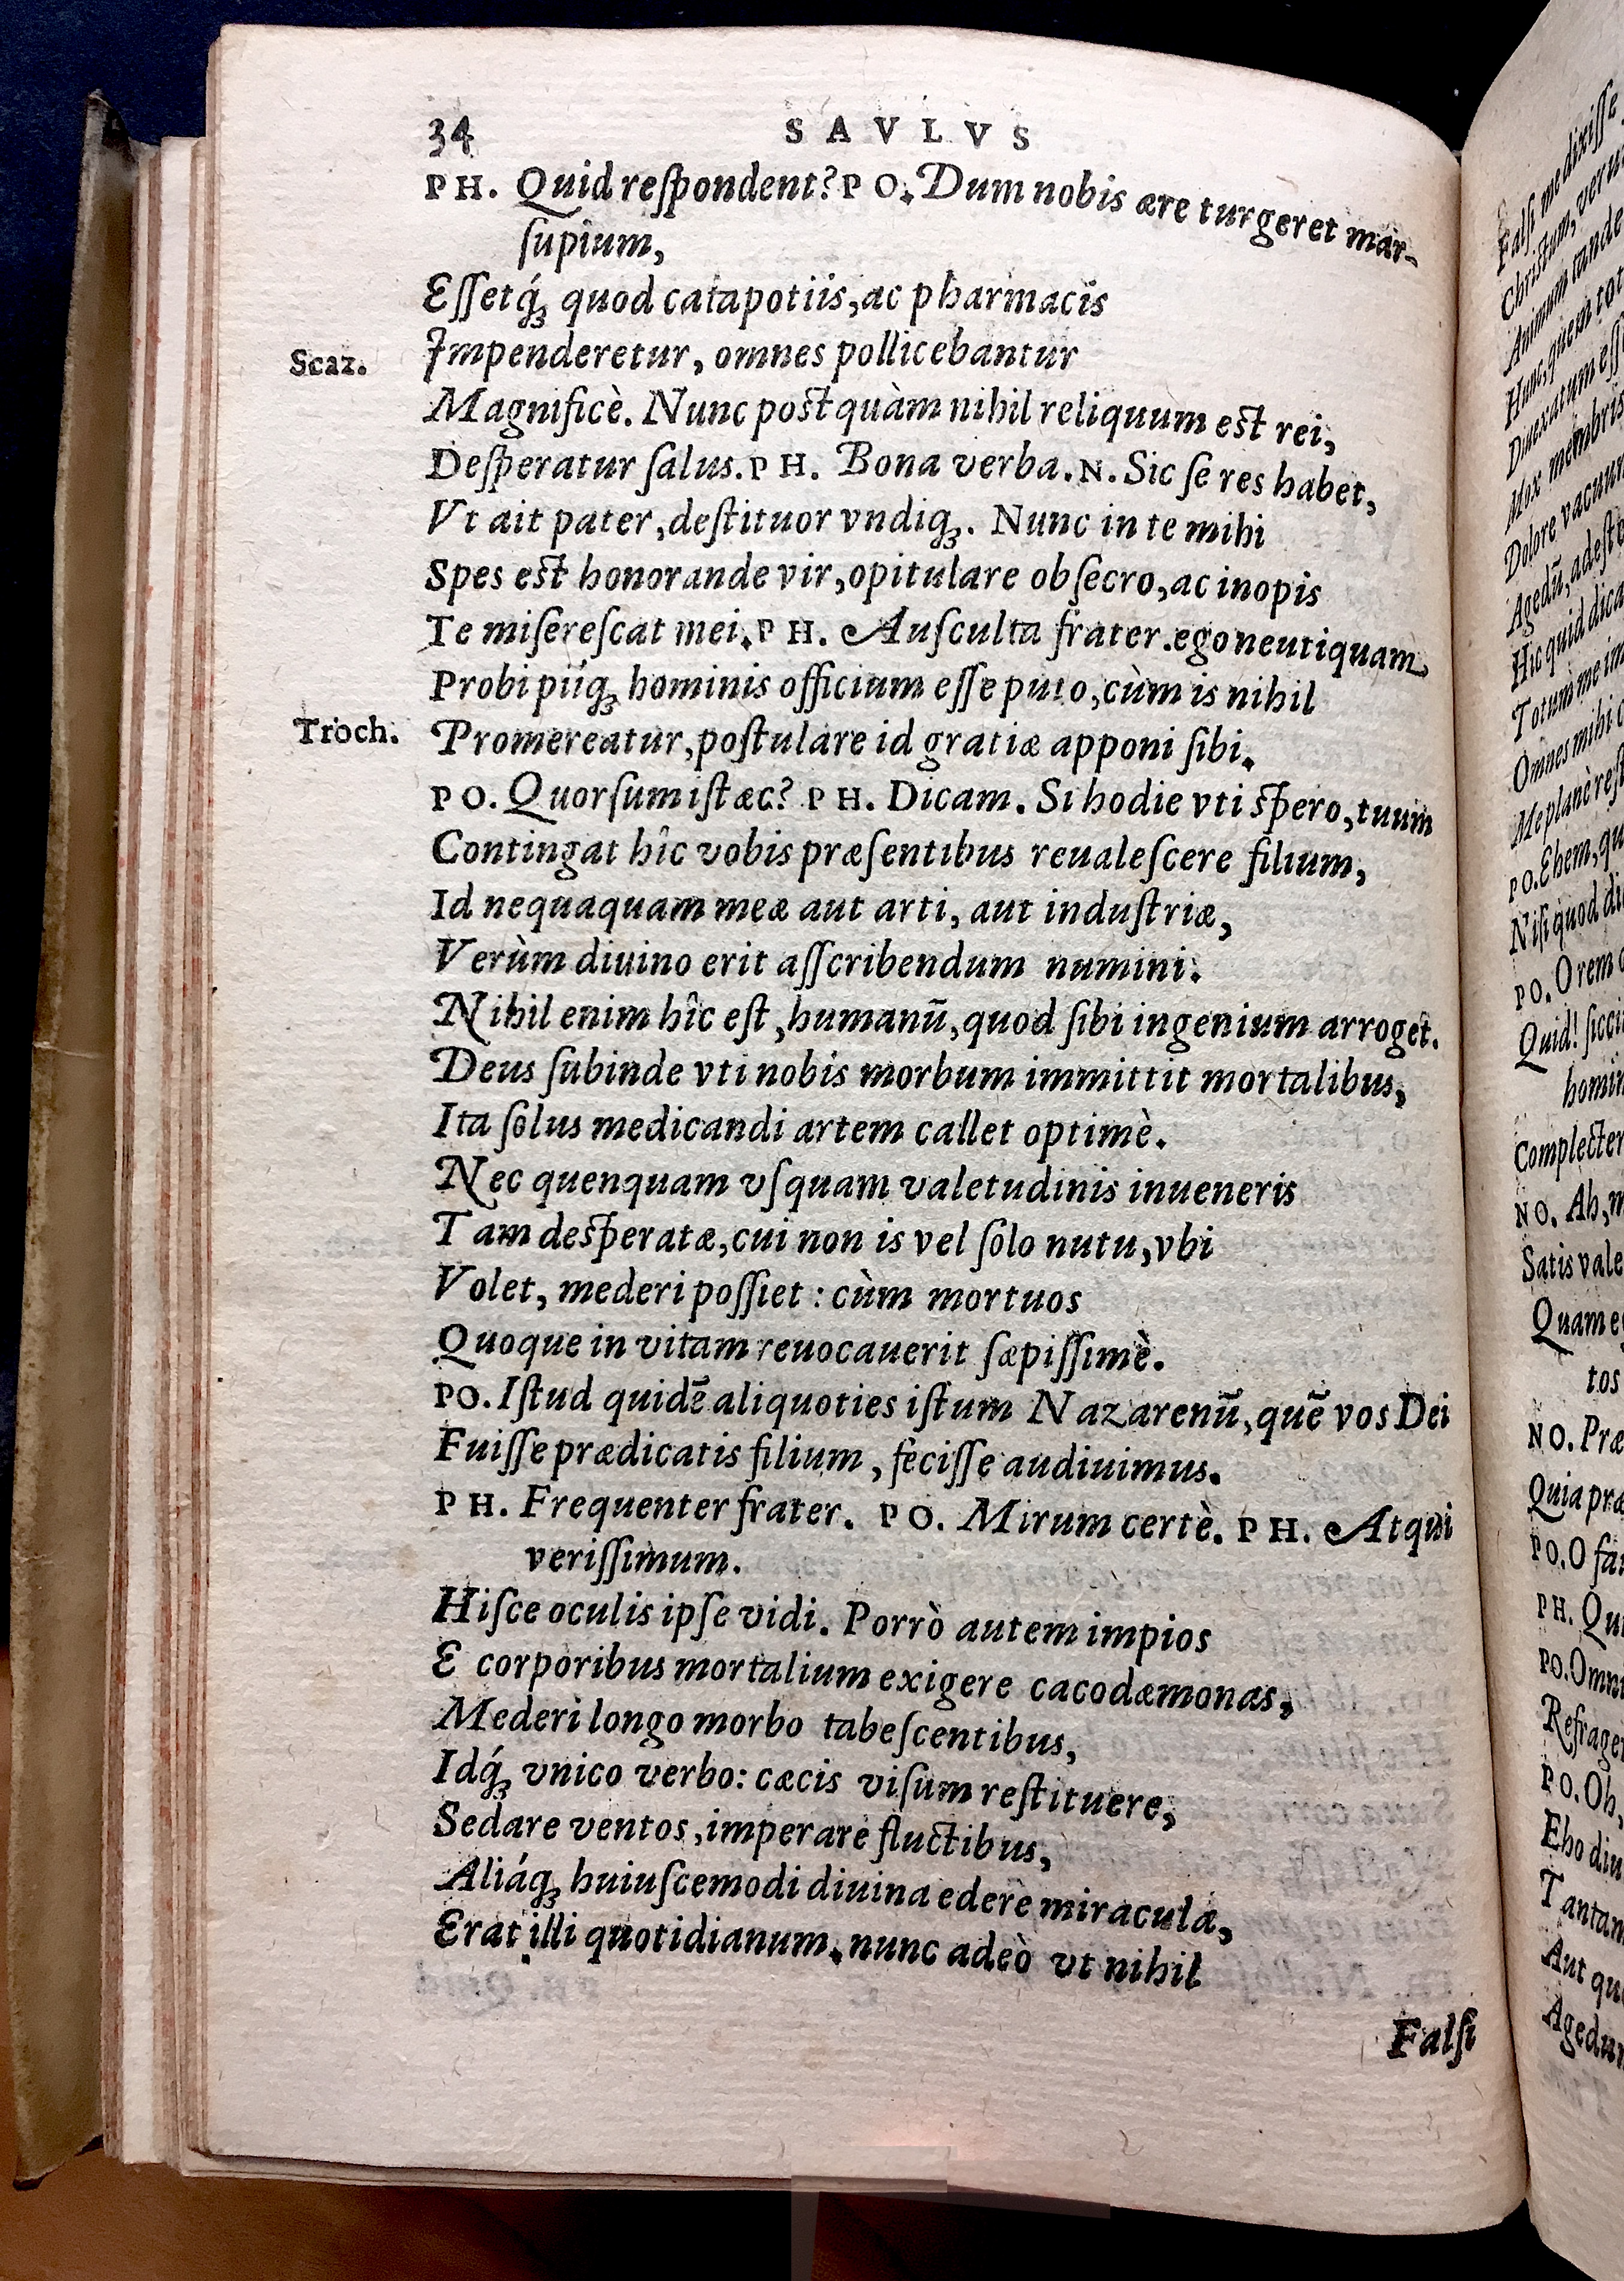 34 SAVLVS
PH. Quid reſpondent? PO. Dum nobis ære turgeret mar-
ſupium,
Eſſetq́ꝫ quod catapotiis, ac pharmacis
Scaz. Impenderetur, omnes pollicebantur
Magnificè. Nunc poſtquàm nihil reliquum eſt rei,
Deſperatur ſalus. PH. Bona verba. N. Sic ſe res habet,
Vt ait pater, deſtituor vndiqꝫ. Nunc in te mihi
Spes eſt honorande vir, opitulare obſecro, ac inopis
Te miſereſcat mei. PH. Auſculta frater. ego neutiquam
Probi piíqꝫ hominis officium eſſe puto, cùm is nihil
Troch. Promereatur, poſtulare id gratiæ apponi ſibi.
PO. Quorſum iſtæc? PH. Dicam. Si hodie vti ſpero, tuum
Contingat hîc vobis præſentibus reualeſcere filium,
Id nequaquam meæ aut arti, aut induſtriæ,
Verùm diuino erit aſſcribendum numini.
Nihil enim hîc eſt, humanū, quod ſibi ingenium arroget.
Deus ſubinde vti nobis morbum immittit mortalibus,
Ita ſolus medicandi artem callet optimè.
Nec quenquam vſquam valetudinis inueneris
Tam deſperatæ, cui non is vel ſolo nutu, vbi
Volet, mederi poſſiet : cùm mortuos
Quoque in vitam reuocauerit ſæpiſſimè.
PO. Iſtud quidē aliquoties iſtum Nazarenū, quē vos Dei
Fuiſſe prædicatis filium, feciſſe audiuimus.
PH. Frequenter frater. PO. Mirum certè. PH. Atqui
veriſſimum.
Hiſce oculis ipſe vidi. Porrò autem impios
E corporibus mortalium exigere cacodæmonas,
Mederi longo morbo tabeſcentibus,
Idq́ꝫ vnico verbo: cæcis viſum reſtituere,
Sedare ventos, imperare fluctibus,
Aliáqꝫ huiuſcemodi diuina edere miracula,
Erat illi quotidianum. nunc adeò vt nihil
Falſi